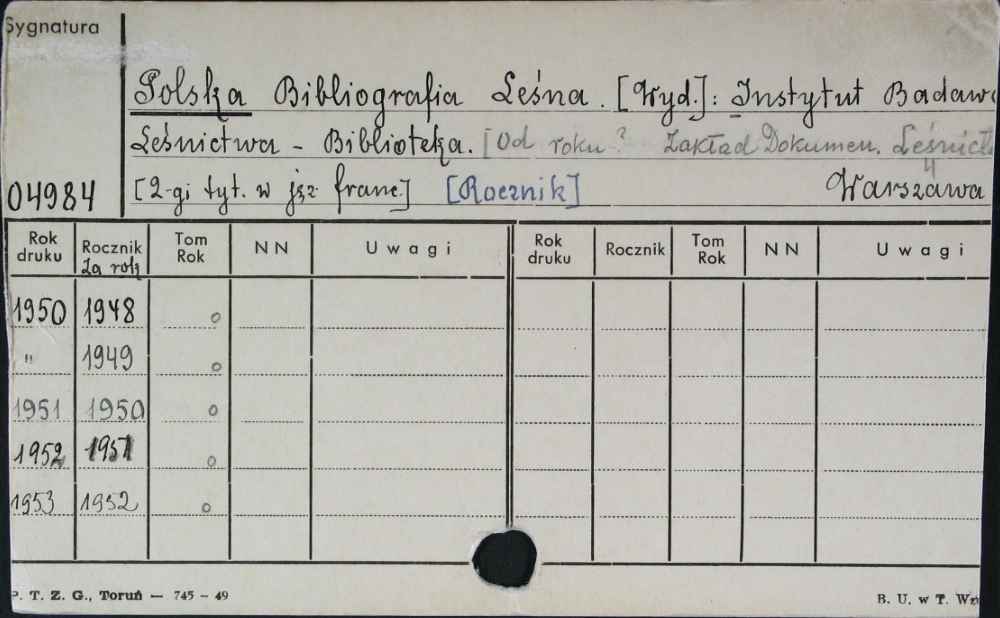 Sygnatura
Polska Bibliografia Leśna. [Wyd.]: Instytut Badawc
Leśnictwa - Biblioteka. [Od roku ? Zakład Dokumen. Leśnictw
04984 [2-gi tyt. w jęz. franc.] [Rocznik] Warszawa
4
Rok druku Rocznik Tom Rok NN Uwagi Rok druku Rocznik Tom Rok NN Uwagi
Za rok
1950 1948 o
" 1949 o
1951 1950 o
1952 1951 o
1953 1952 o
P. T. Z. G., Toruń — 745 - 49 B. U. w T. Wz